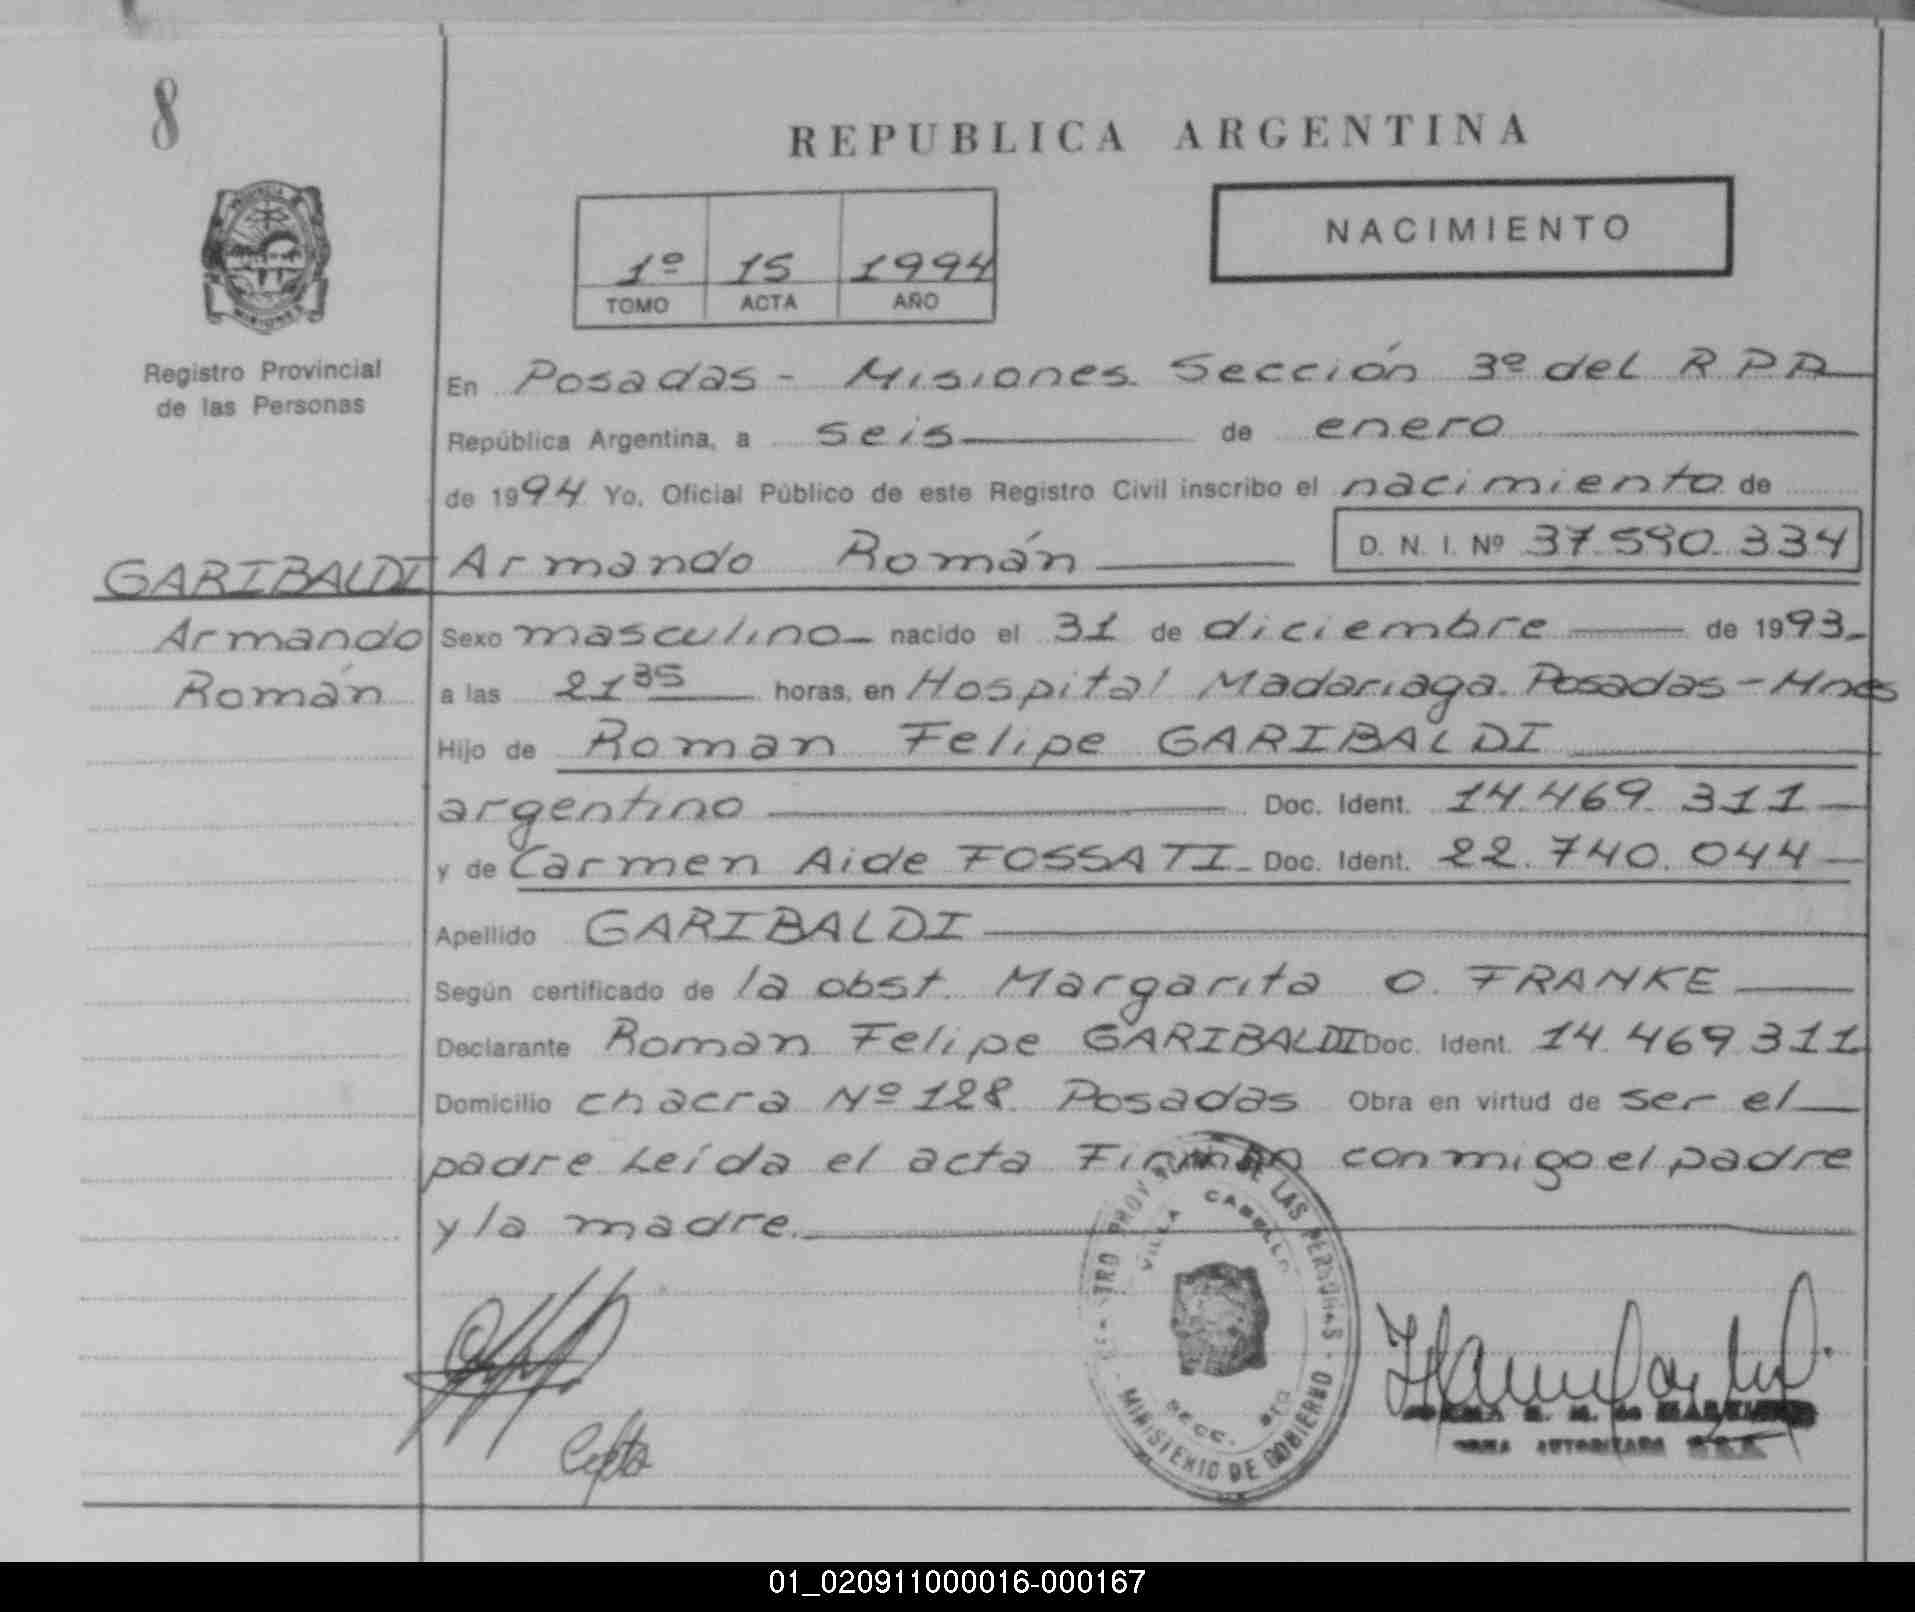 8
REPUBLICA ARGENTINA
NACIMIENTO
1º 15 1994
TOMO ACTA AÑO
MISIONES
Registro Provincial
de las Personas
En Posadas - Misiones Sección 3º del R P P
República Argentina, a seis de enero
de 1994 Yo, Oficial Público de este Registro Civil inscribo el nacimiento de
GARIBALDI Armando Román D. N. I. Nº 37.590.334
Armando Sexo masculino nacido el 31 de diciembre de 1993
Román a las 21 35 horas, en Hospital Madariaga. Posadas - Mnes
Hijo de Roman Felipe GARIBALDI
argentino Doc. Ident. 14.469.311
y de Carmen Aide FOSSATI Doc. Ident. 22.740.044
Apellido GARIBALDI
Según certificado de la obst. Margarita O. FRANKE
Declarante Roman Felipe GARIBALDI Doc. Ident. 14.469.311
Domicilio chacra Nº 128 Posadas Obra en virtud de ser el
padre Leída el acta Firman conmigo el padre
y la madre.
DE LAS PERSONAS
VILLA CABELLO
SECC.
MINISTERIO DE GOBIERNO
01_020911000016-000167